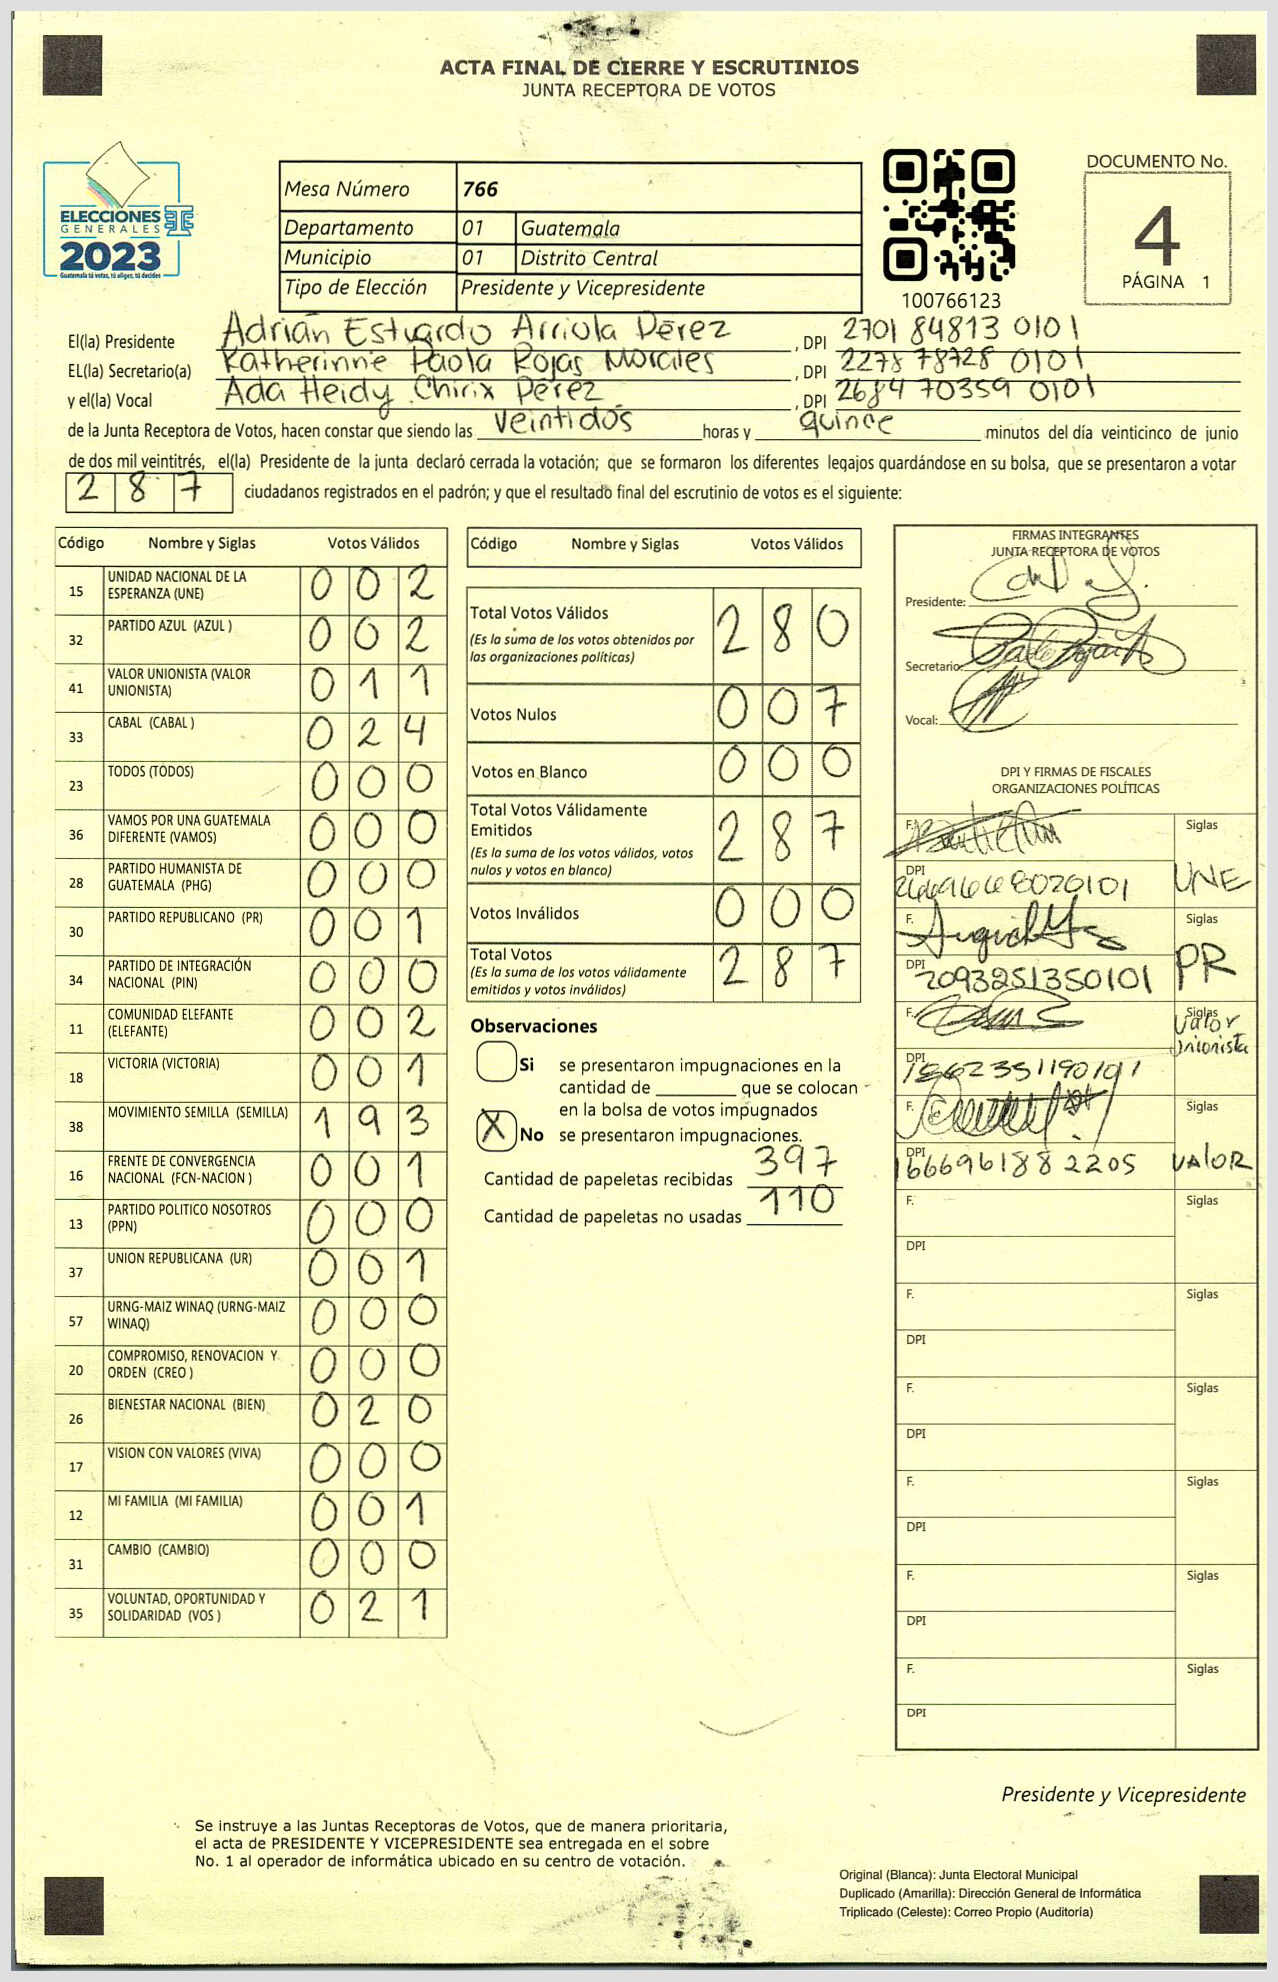 ACTA FINAL DE CIERRE Y ESCRUTINIOS
JUNTA RECEPTORA DE VOTOS
ELECCIONES
GENERALES
2023
Guatemala tú votas, tú eliges, tú decides
Mesa Número 766
Departamento 01 Guatemala
Municipio 01 Distrito Central
Tipo de Elección Presidente y Vicepresidente
100766123
DOCUMENTO No.
4
PÁGINA 1
El(la) Presidente Adrián Estuardo Arriola Pérez, DPI 2701 84813 0101
EL(la) Secretario(a) Katherinne Paola Rojas Morales, DPI 2278 78728 0101
y el(la) Vocal Ada Heidy Chirix Pérez, DPI 2684 70359 0101
de la Junta Receptora de Votos, hacen constar que siendo las veintidos horas y quince minutos del día veinticinco de junio
de dos mil veintitrés, el(la) Presidente de la junta declaró cerrada la votación; que se formaron los diferentes legajos guardándose en su bolsa, que se presentaron a votar
287 ciudadanos registrados en el padrón; y que el resultado final del escrutinio de votos es el siguiente:
Código Nombre y Siglas Votos Válidos
15 UNIDAD NACIONAL DE LA ESPERANZA (UNE) 002
32 PARTIDO AZUL (AZUL ) 002
41 VALOR UNIONISTA (VALOR UNIONISTA) 011
33 CABAL (CABAL ) 024
23 TODOS (TODOS) 000
36 VAMOS POR UNA GUATEMALA DIFERENTE (VAMOS) 000
28 PARTIDO HUMANISTA DE GUATEMALA (PHG) 000
30 PARTIDO REPUBLICANO (PR) 001
34 PARTIDO DE INTEGRACIÓN NACIONAL (PIN) 000
11 COMUNIDAD ELEFANTE (ELEFANTE) 002
18 VICTORIA (VICTORIA) 001
38 MOVIMIENTO SEMILLA (SEMILLA) 193
16 FRENTE DE CONVERGENCIA NACIONAL (FCN-NACION ) 001
13 PARTIDO POLITICO NOSOTROS (PPN) 000
37 UNION REPUBLICANA (UR) 001
57 URNG-MAIZ WINAQ (URNG-MAIZ WINAQ) 000
20 COMPROMISO, RENOVACION Y ORDEN (CREO ) 000
26 BIENESTAR NACIONAL (BIEN) 020
17 VISION CON VALORES (VIVA) 000
12 MI FAMILIA (MI FAMILIA) 001
31 CAMBIO (CAMBIO) 000
35 VOLUNTAD, OPORTUNIDAD Y SOLIDARIDAD (VOS ) 021
Código Nombre y Siglas Votos Válidos
Total Votos Válidos 280
(Es la suma de los votos obtenidos por
las organizaciones políticas)
Votos Nulos 007
Votos en Blanco 000
Total Votos Válidamente
Emitidos 287
(Es la suma de los votos válidos, votos
nulos y votos en blanco)
Votos Inválidos 000
Total Votos 287
(Es la suma de los votos válidamente
emitidos y votos inválidos)
Observaciones
Si se presentaron impugnaciones en la
cantidad de ________ que se colocan
en la bolsa de votos impugnados
X No se presentaron impugnaciones.
Cantidad de papeletas recibidas 397
Cantidad de papeletas no usadas 110
FIRMAS INTEGRANTES
JUNTA RECEPTORA DE VOTOS
Presidente:
Secretario:
Vocal:
DPI Y FIRMAS DE FISCALES
ORGANIZACIONES POLÍTICAS
F. Siglas
DPI UNE
F. Siglas
DPI 2093251350101 PR
F. Siglas
Valor
Unionista
DPI
F. Siglas
DPI 1666961882205 VALOR
F. Siglas
DPI
F. Siglas
DPI
F. Siglas
DPI
F. Siglas
DPI
F. Siglas
DPI
F. Siglas
DPI
Presidente y Vicepresidente
Se instruye a las Juntas Receptoras de Votos, que de manera prioritaria,
el acta de PRESIDENTE Y VICEPRESIDENTE sea entregada en el sobre
No. 1 al operador de informática ubicado en su centro de votación.
Original (Blanca): Junta Electoral Municipal
Duplicado (Amarilla): Dirección General de Informática
Triplicado (Celeste): Correo Propio (Auditoría)